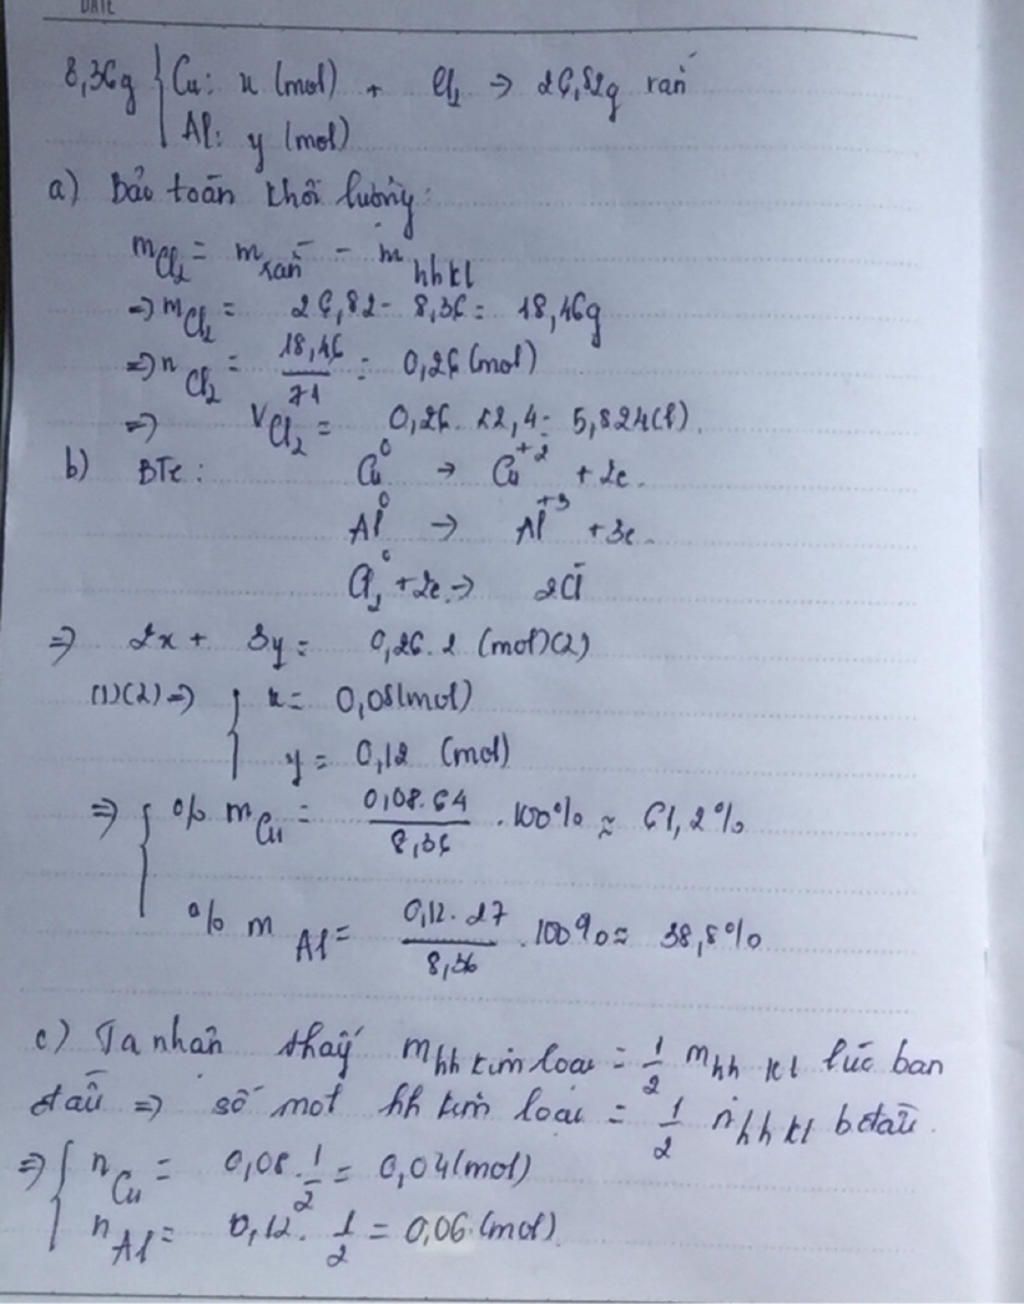 DATE
8,36g { Cu: x (mol) + Cl₂ → 26,82g rắn
Al: y (mol)
a) Bảo toàn khối lượng:
m Cl₂ = m rắn - m hhkl
=> m Cl₂ = 26,82 - 8,36 = 18,46g
=> n Cl₂ = 18,46/71 = 0,26 (mol)
=> V Cl₂ = 0,26. 22,4 = 5,824(l).
b) BTe: Cu⁰ → Cu⁺² + 2e.
Al⁰ → Al⁺³ + 3e.
Cl₂⁰ + 2e → 2Cl⁻
=> 2x + 3y = 0,26. 2 (mol)(2)
(1)(2) => { x = 0,08(mol)
y = 0,12 (mol)
=> { % m Cu = 0,08.64/8,36 . 100% ≈ 61,2%
% m Al = 0,12.27/8,36 . 100% ≈ 38,8%
c) Ta nhận thấy m hh kim loại = 1/2 m hh kl lúc ban
đầu => số mol hh kim loại = 1/2 n hh kl b.đầu.
=> { n Cu = 0,08. 1/2 = 0,04(mol)
n Al = 0,12. 1/2 = 0,06 (mol)